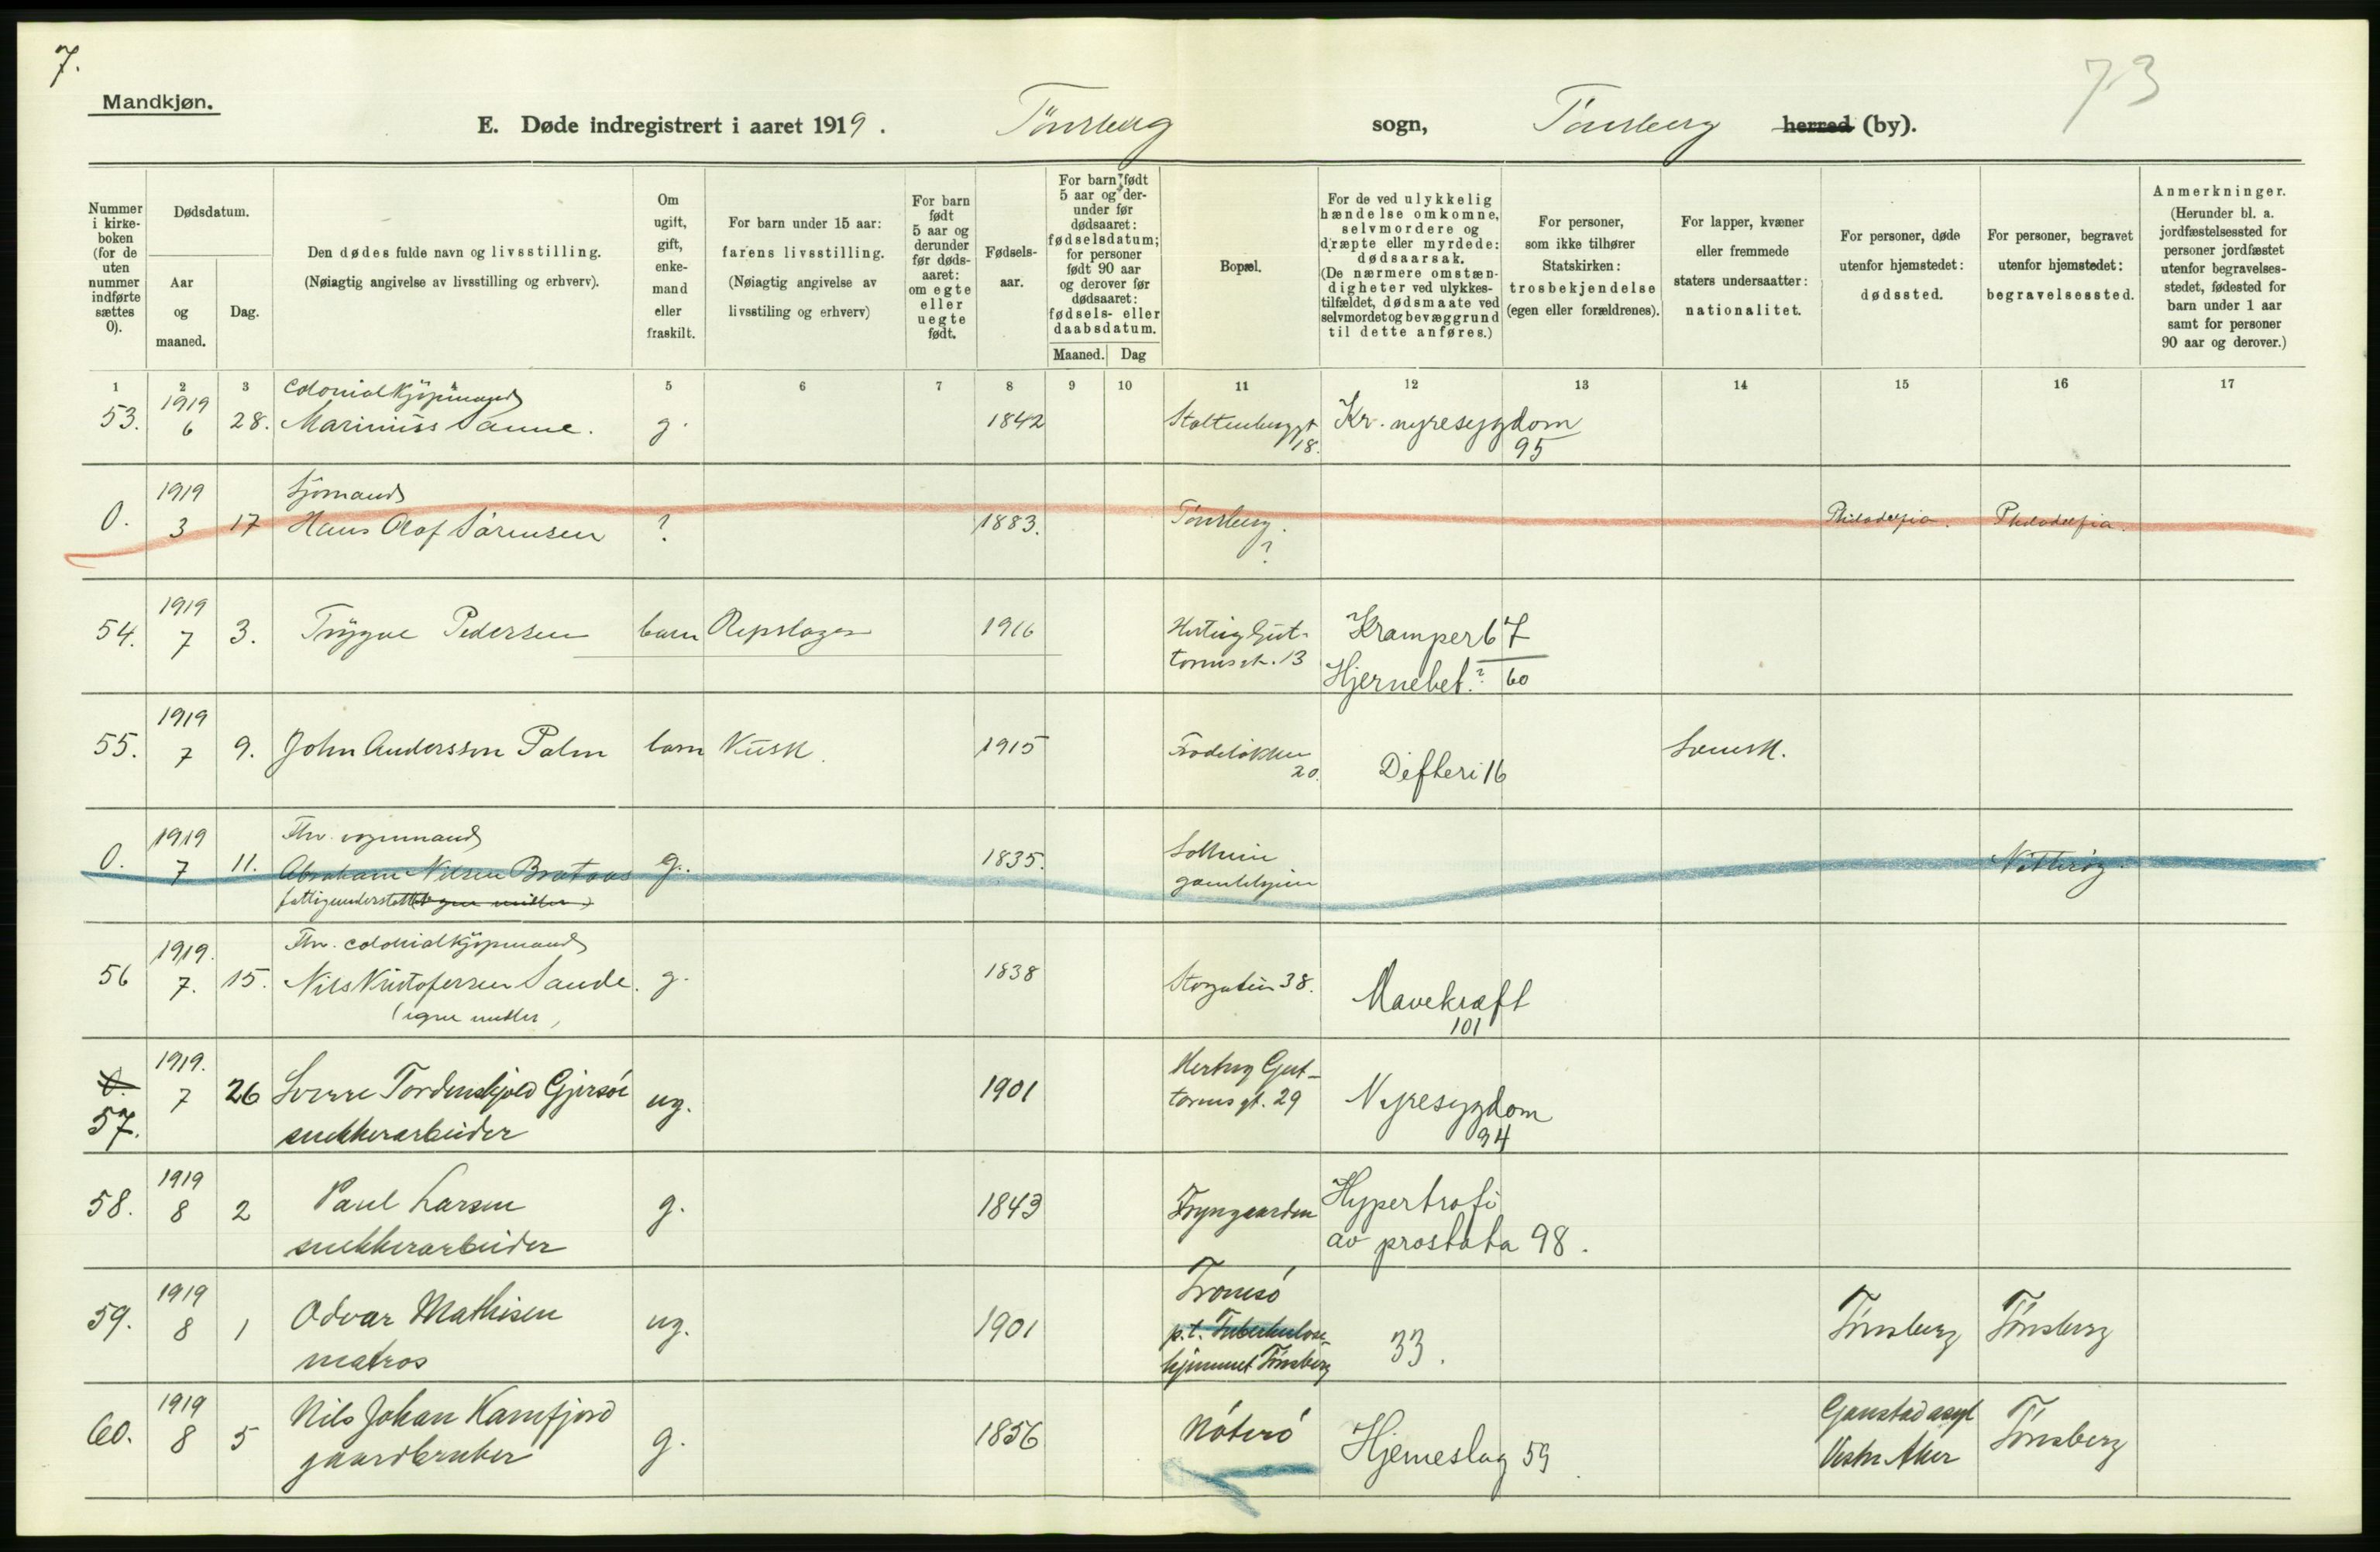 7.
73
Mandkjøn.
E. Døde indregistrert i aaret 1919. Tönsberg sogn, Tönsberg herred (by).
Nummer i kirke-boken (for de uten nummer indførte sættes 0).
Dødsdatum.
Aar og maaned.
Dag.
Den dødes fulde navn og livsstilling.
(Nøiagtig angivelse av livsstilling og erhverv).
Om ugift, gift, enke-mand eller fraskilt.
For barn under 15 aar:
farens livsstilling.
(Nøiagtig angivelse av livsstiling og erhverv)
For barn født 5 aar og derunder før døds-aaret: om egte eller uegte født.
Fødsels-aar.
For barn født 5 aar og der-under før dødsaaret: fødselsdatum; for personer født 90 aar og derover før dødsaaret: fødsels- eller daabsdatum.
Maaned. Dag
Bopæl.
For de ved ulykkelig hændelse omkomne, selvmordere og dræpte eller myrdede: dødsaarsak.
(De nærmere omstæn-digheter ved ulykkes-tilfældet, dødsmaate ved selvmordet og bevæggrund til dette anføres.)
For personer, som ikke tilhører Statskirken: trosbekjendelse (egen eller forældrenes).
For lapper, kvæner eller fremmede staters undersaatter: nationalitet.
For personer, døde utenfor hjemstedet: dødssted.
For personer, begravet utenfor hjemstedet: begravelsessted.
Anmerkninger.
(Herunder bl. a. jordfæstelsessted for personer jordfæstet utenfor begravelses-stedet, fødested for barn under 1 aar samt for personer 90 aar og derover.)
1 2 3 5 6 7 8 9 10 11 12 13 14 15 16 17
colonialkjöpmand
53. 1919 6 28. Marinius Sanne. g. 1842 Stoltenberggt 18. Kr. nyresygdom 95
Sjömand
0. 1919 3 17 Hans Olaf Sörensen ? 1883. Tönsberg. ? Philadelfia. Philadelfia.
54. 1919 7 3. Trygve Pedersen barn Repslager 1916 Hertug Gut-
tormsgt. 13 Kramper 67
Hjernebet.? 60
55. 1919 7 9. John Andersson Palm barn Kusk. 1915 Frodeløkken 20. Difteri 16 Svensk.
Fhv. vognmand
0. 1919 7 11. Abraham Nilsen Brataas g. 1835. Solheim
gamlehjem Nötteröy.
fattigunderstöttet (egne midler)
Fhv. colonialkjöpmand
56 1919. 7. 15. Nils Kristofersen Sande. g. 1838 Storgaten 38. Mavekræft 101
(egne midler)
0. 57. 1919. 7 26 Sverre Tordenskjold Gjersöe ug. 1901 Hertug Gut-
tormsgt. 29 Nyresygdom 94
snekkerarbeider
58. 1919 8 2 Paul Larsen g. 1843 Hypertrofi
snekkerarbeider av prostata 98.
59. 1919 8 1 Odvar Mathisen ug. 1901 Tromsö
p.t. Tuberkulose-
hjemmet Tönsberg 33. Tönsberg Tönsberg
matros
60. 1919 8 5 Nils Johan Kamfjord g. 1856 Nöterö Hjerneslag 59 Gaustad asyl
Vestre Aker Tönsberg
gaardbruker